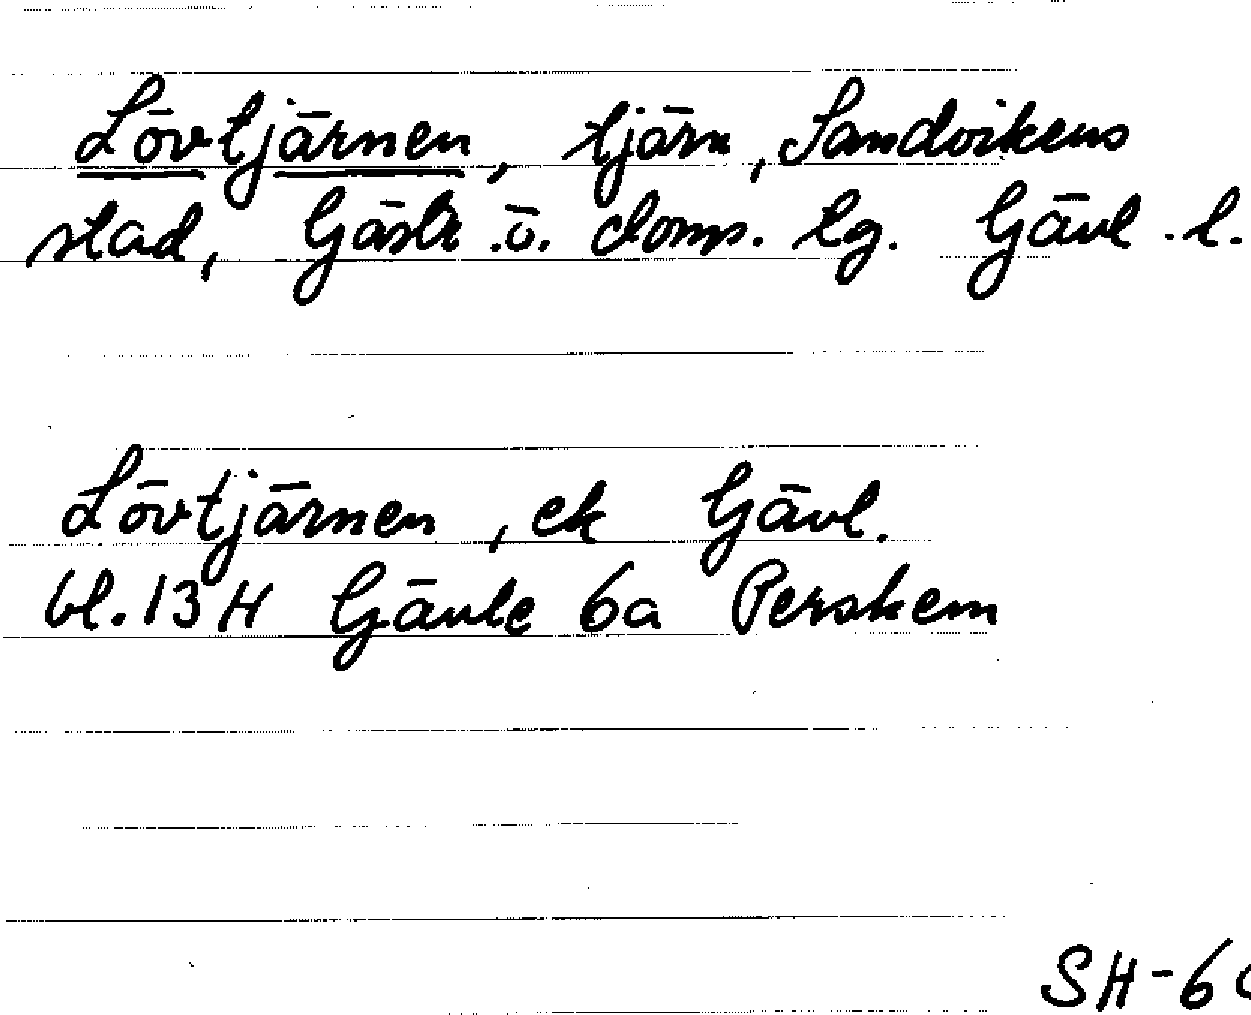 Lövtjärnen, tjärn, Sandvikens
stad, Gästr. ö. doms. lg. Gävl. l.
Lövtjärnen, ek Gävl.
bl. 13H Gävle 6a Perskem
SH-6